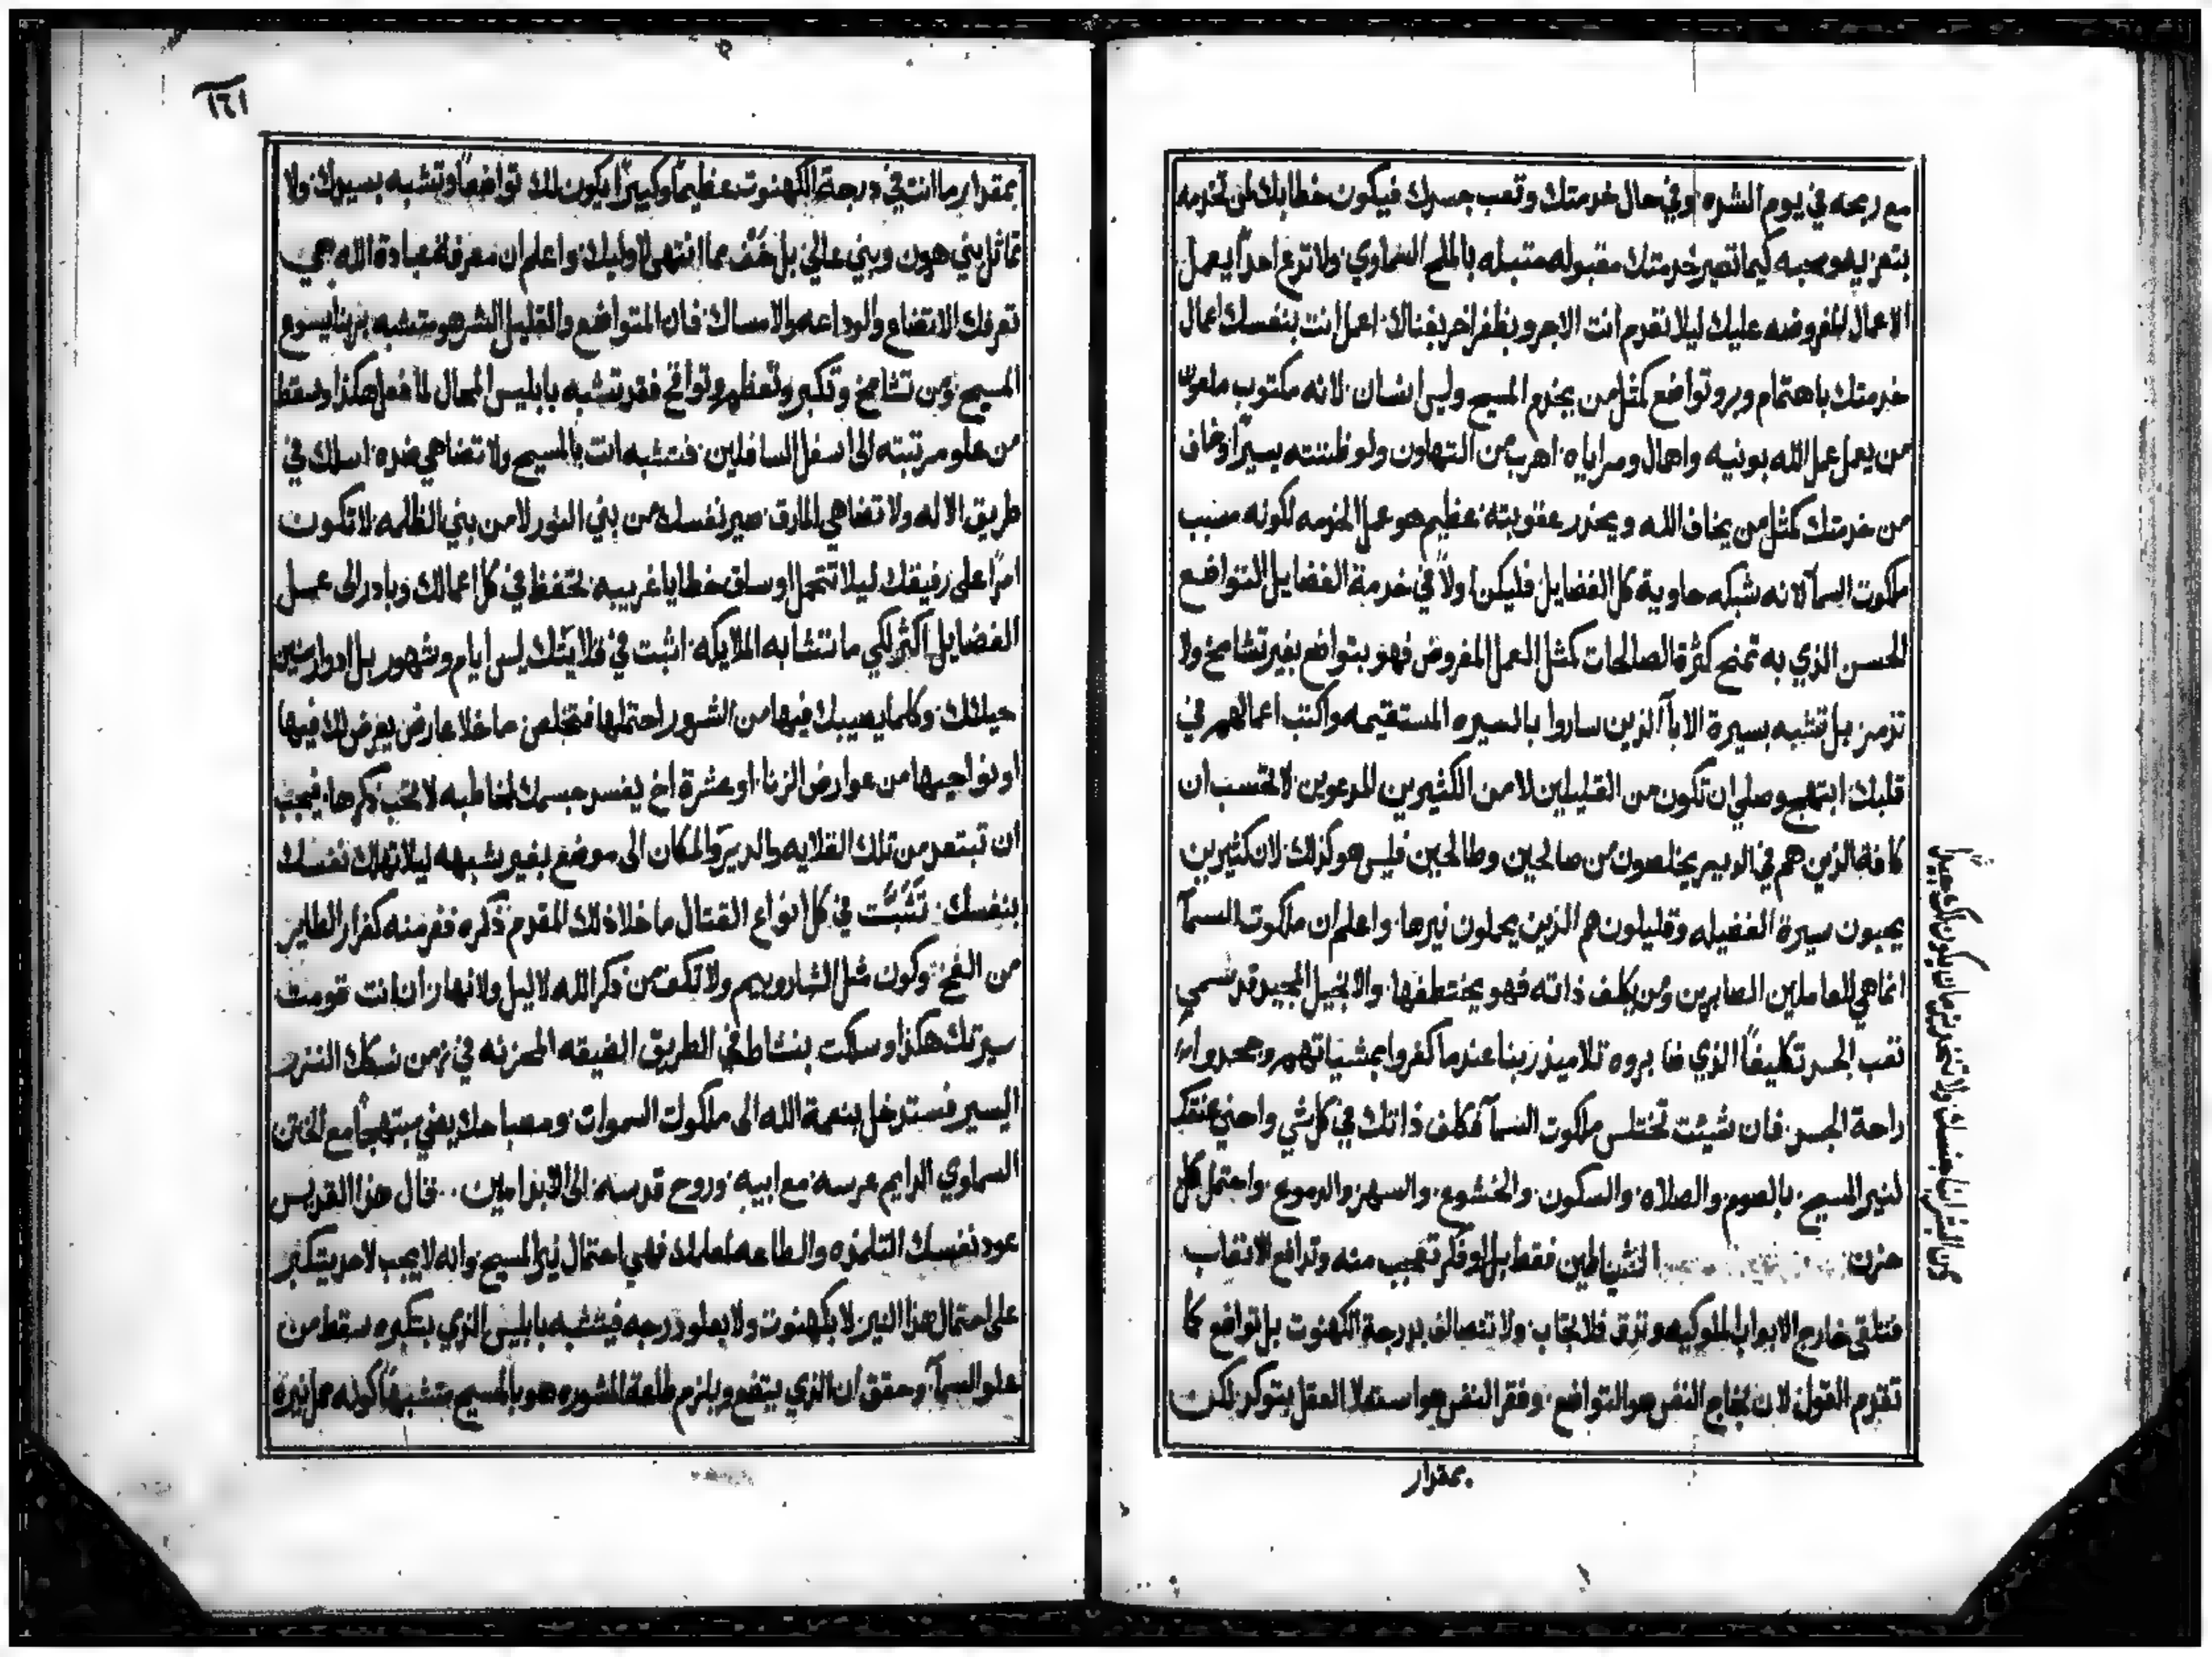 مع ربحه في يوم الشره وفي حال خدمتك وتعب جسدك فيكون خطابك لمن تخدمه
بتعزيه ومحبه كيما تصير خدمتك مقبوله متبله بالملح السماوي ولا تدع احدًا يعمل
الاعمال المفروضه عليك ليلا تقدم انت الاجر ويظفر اخر بغناك اعمل انت بنفسك اعمال
خدمتك باهتمام وبر وتواضع كمثل من يخدم المسيح وليس انسان لانه مكتوب ملعون
من يعمل عمل الله بونيه واهمال ومراياه اهرب من التهاون ولو ظننته يسيرًا وخاف
من خدمتك كمثل من يخاف الله ويحذر عقوبته عظيم هو عمل الخدمه لكونه مسبب
ملكوت السمآ لانه شبكه حاوية كل الفضايل فليكن اولاً في خدمة الفضايل التواضع
الحسن الذي به تمنح كثرة الصالحات كمثل العمل المفروض فهو بتواضع بغير تشامخ ولا
تزمز بل تشبه بسيرة الابآ الذين ساروا بالسيره المستقيمه واكتب اعمالهم في
قلبك ابتهج وصلي ان تكون من القليلين لا من الكثيرين المدعوين لا تحتسب ان
كافة الذين هم في الديير يخلصون من صالحين وطالحين فليس هو كذلك لان كثيرين
يحبون سيرة الفضيله وقليلون هم الذين يحملون نيرها واعلم ان ملكوت السمآ
انما هي للعاملين الصابرين ومن يكلف ذاته فهو يختطفها والانجيل المجيد قد سمي
تعب الجسد تكليفًا الذي خابروه تلاميذ ربنا عندما كفروا بمشياتهم وجحدوا
راحة الجسد فان شيت تختلس ملكوت السمآ فكلف ذاتك في كل شي واحني عنقك
لنير المسيح بالصوم والصلاه والسكون والخشوع والسهر والدموع واحتمل كل
حزن الشياطين فقط بل الو فكر تعجب منه وترافع الاتعاب
فتلقى خارج الابواب الملوكيه وتزق فلا تجاب ولا تتصالف بدرجة الكهنوت بل تواضع كما
تقدم القول لان نجاح النفس هو التواضع وفقر النفس هو استعلا العقل بتوكد لكن
بمقدار
بمقدار ما انت في درجة الكهنوت عظيماً وكبيرًا يكون لك تواضعًا وتشبه بسيدك ولا
تماثل بني هرون وبني عالي بل خَف مما انتهى لاوليك واعلم ان معرفة عبادة الله هي
تعرفك الاتضاع والوداعه والامساك فان المتواضع والقليل الشر هو متشبه بربنا يسوع
المسيح ومن تشامخ وتكبر وتعظم وتواقح فقد تشبه بابليس المحال لما فعل هكذا وسقط
من علو مرتبته الى اسفل السافلين فتشبه انت بالمسيح ولا تضاهي ضده اسلك في
طريق الاله ولا تضاهي المارق صير نفسك من بني النور لا من بني الظلمه لا تكون
امرًا على رفيقك ليلا تتحمل اوساق خطايا غريبه تحتفظ في كل اعمالك وبادر الى عمل
الفضايل اكثر لكي ما تتشابه الملايكه اثبت في قلايتك ليس ايام وشهور بل ادوار سنين
حياتك وكلما يصيبك فيها من الشرور احتملها فتخلص ما خلا عارض يعرض لك فيها
او نواحيها من عوارض الزنا او عشرة اخ يفسد جسمك لمخاطبه لا تحب ذكرها فيجب
ان تبتعد من تلك القلايه والدير والمكان الى موضع بغير شبهه ليلا تهلك نفسك
بنفسك تَثَبَّت في كل انواع القتال ما خلا ذلك المقدم ذكره ففر منه كفرار الطاير
من الفخ وكون مثل الشاروبيم ولا تكف من ذكر الله لا ليل ولا نهار ان انت قومت
سيرتك هكذا وسلكت بنشاط في الطريق الضيقه المحزنه في زمن نسكك النزر
اليسير فستدخل بنعمة الله الى ملكوت السموات ومصباحك يضي مبتهجًا مع الختن
السماوي الدايم عرسه مع ابيه وروح قدسه الى الابد امين قال هذا القديس
عود نفسك التلمذه والطاعه لمعلمك فهي احتمال نير المسيح وانه لا يجب لاحد يتكبر
على احتمال هذا النير لا بكهنوت ولا بعلو درجه فيتشبه بابليس الذي بتكبره سقط من
علو السمآ وحقق ان الذي يتضع ويلزم طاعة المشوره هو بالمسيح متشبهًا كونه حمل نيره
١٦١